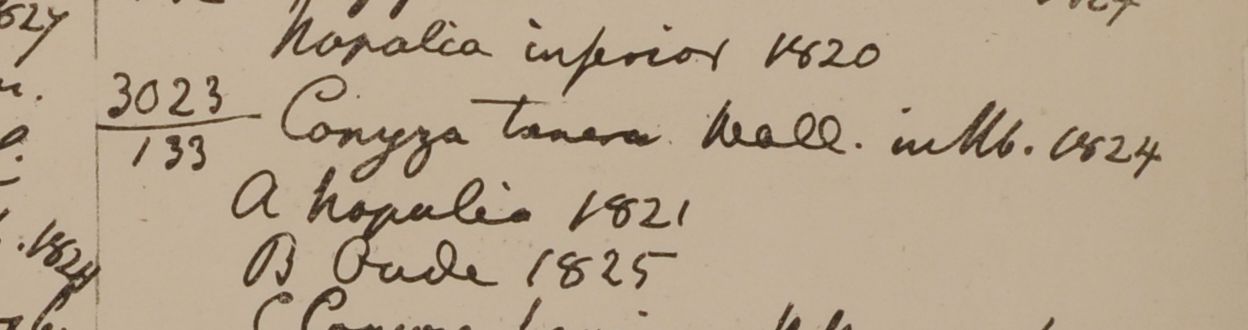 Napalia inferior 1820
3023
133
Conyza Wall. in Hb. 1824
A Napalia 1821
B Oude 1825